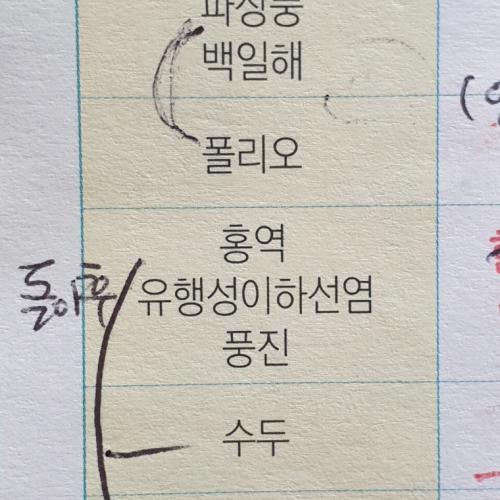 파상풍
백일해
폴리오
홍역
유행성이하선염
풍진
수두